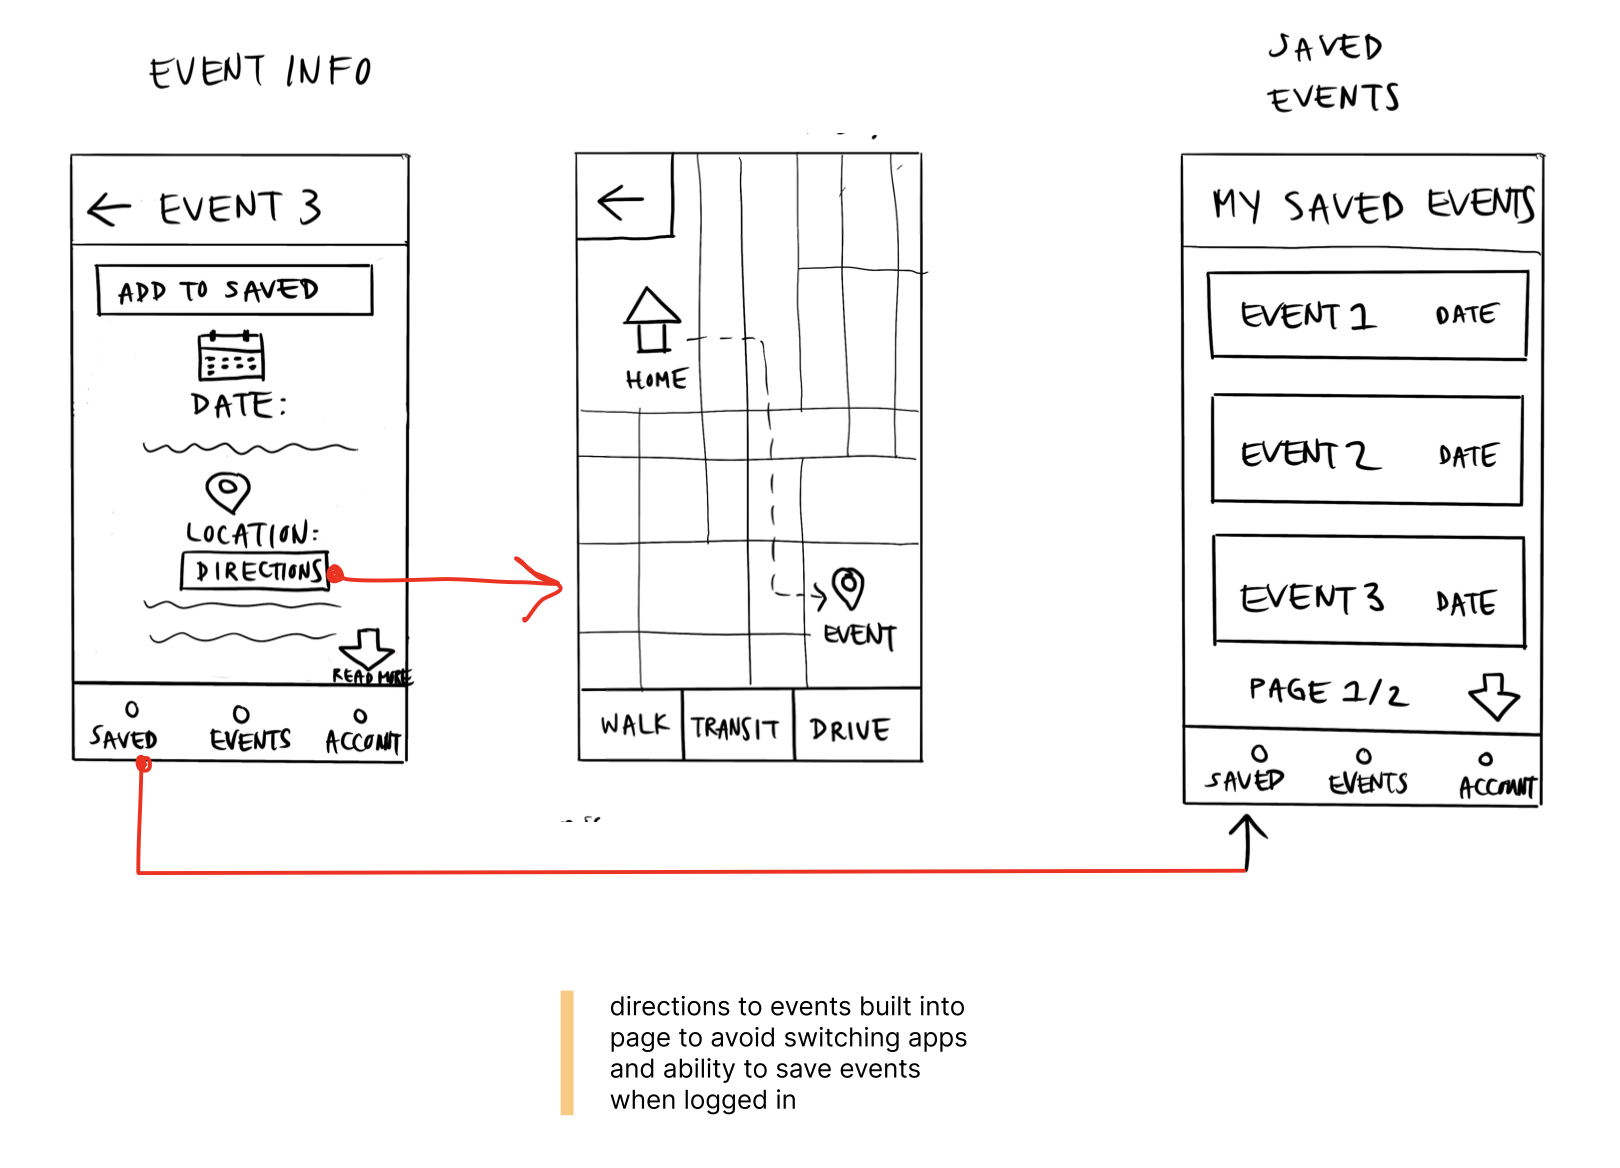 EVENT INFO
← EVENT 3
ADD TO SAVED
DATE:
LOCATION:
DIRECTIONS
READ MORE
SAVED EVENTS ACCOUNT
HOME
EVENT
WALK TRANSIT DRIVE
SAVED
EVENTS
MY SAVED EVENTS
EVENT 1 DATE
EVENT 2 DATE
EVENT 3 DATE
PAGE 1/2
SAVED EVENTS ACCOUNT
directions to events built into
page to avoid switching apps
and ability to save events
when logged in